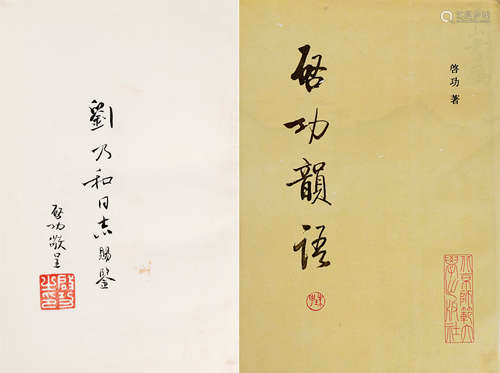 劉乃和同志賜鑒
啓功敬呈
啓功之印
啓功韻語
啓功 著
北京師範大
學出版社